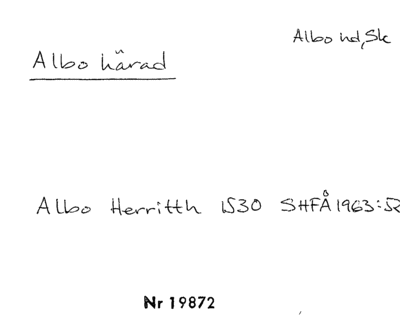 Albo hd, Sk
Albo härad
Albo Herritth 1530 SHFÅ 1963:52
Nr 19872